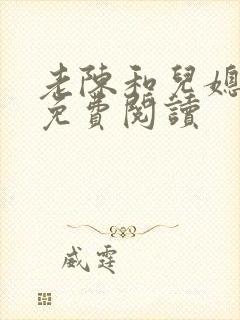 老陳和兒媳
免費閱讀
威霆